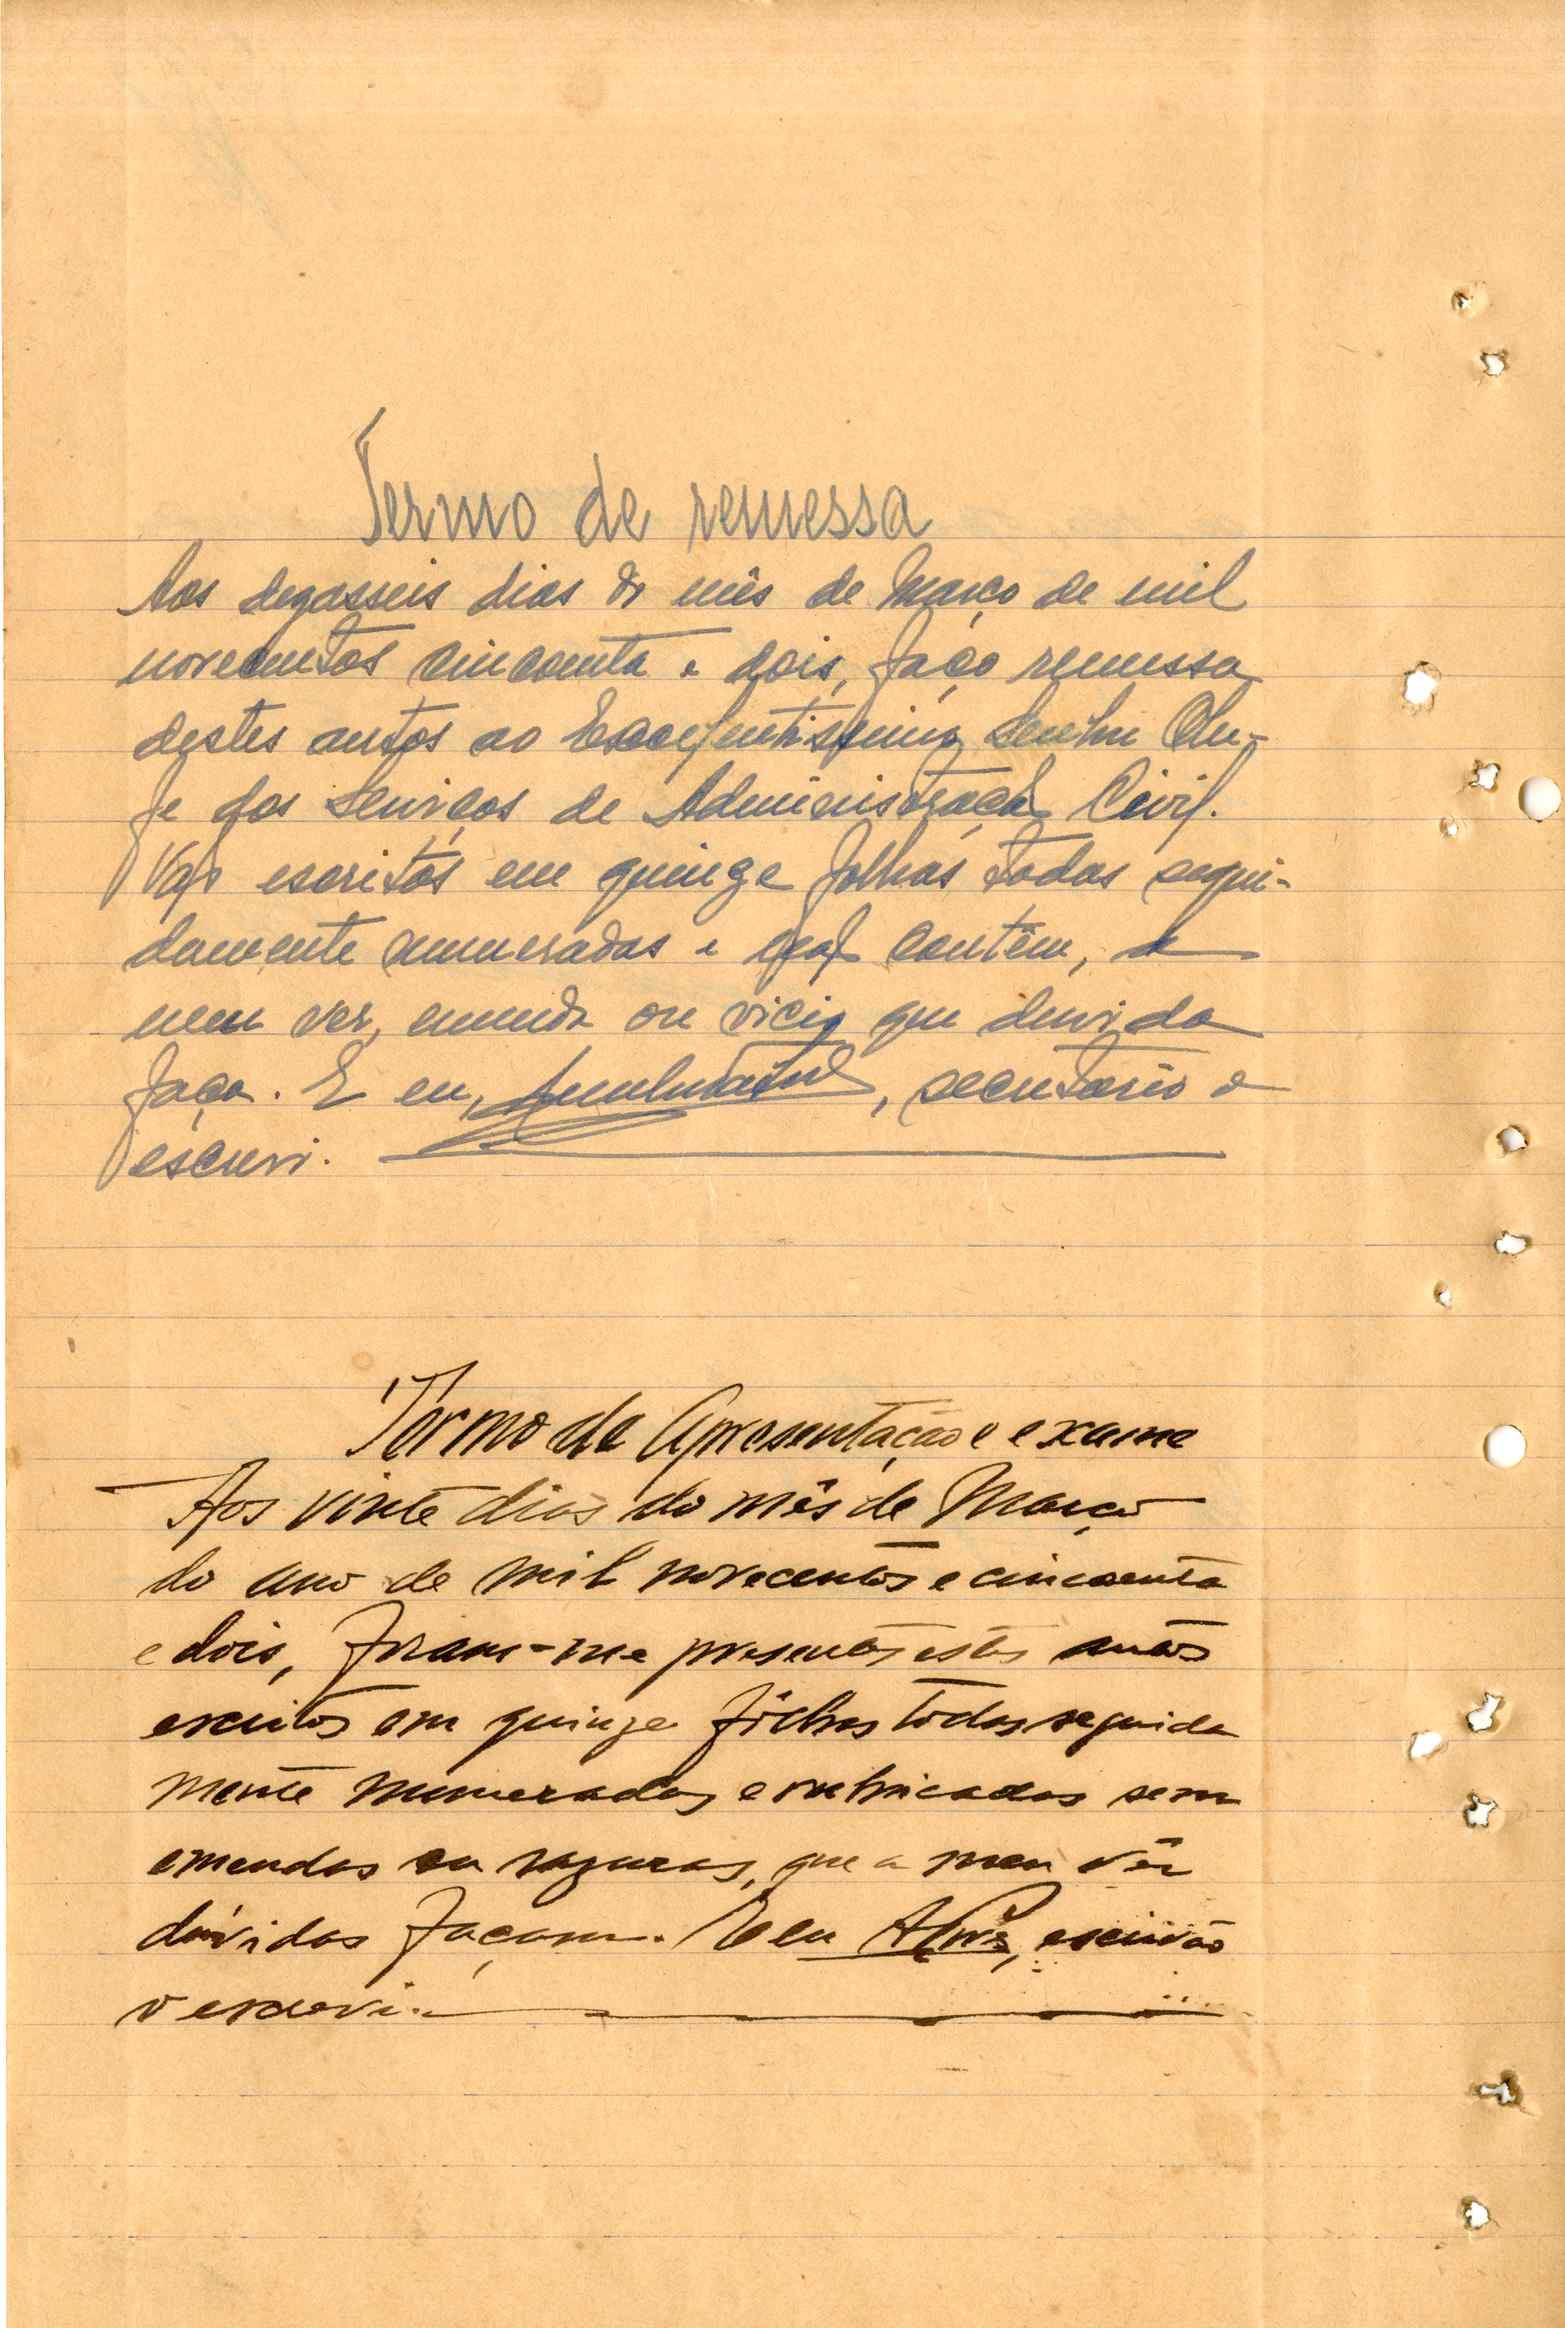 Termo de remessa
Aos dezasseis dias do mês de Março de mil
novecentos cincoenta e dois, faço remessa
destes autos ao Excelentissimo Senhor Che-
fe dos Serviços de Administração Civil.
Vão escritos em quinze folhas todas segui-
damente numeradas e não contêm, a
meu ver, emenda ou vicio que duvida
faça. E eu, , secretario o
escrevi.
Termo de Apresentação e exame
Aos vinte dias do mês de Março
do ano de mil novecentos e cincoenta
e dois, foram-me presentes estes autos
escritos em quinze fôlhas todas seguida
mente numeradas e rubricadas sem
emendas ou razuras, que a meu vêr
dúvidas façam. E eu , escrivão
o escrevi.